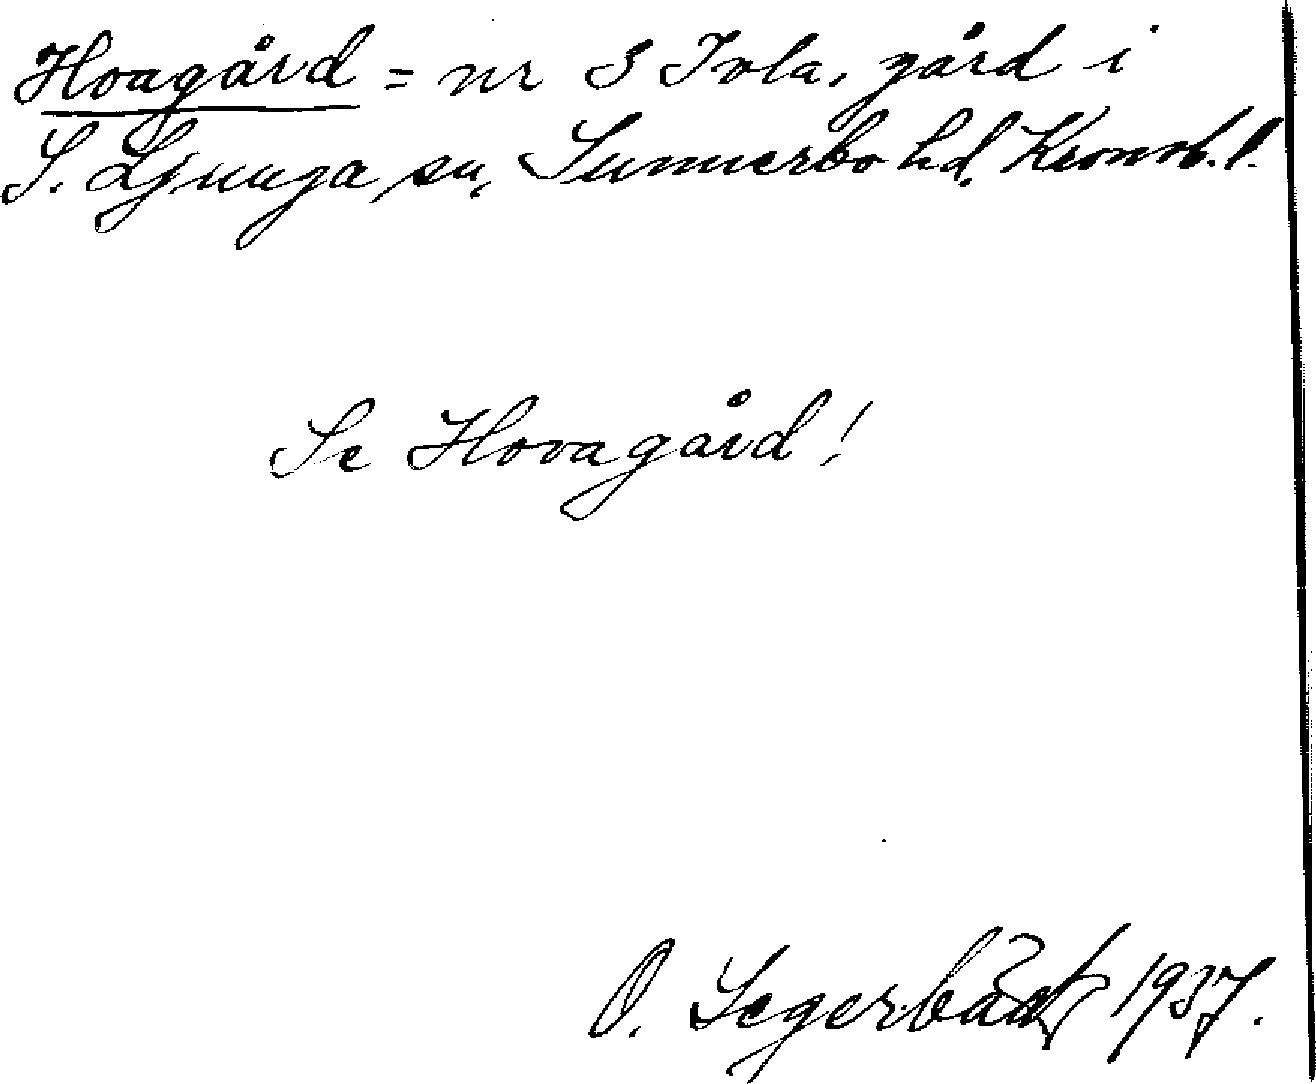 Hoagård = nr 3 Ivla, gård i
S. Ljunga sn, Sunnerbo hd. Kronob. l.
Se Hovagård!
O. Segerbäck 1937.